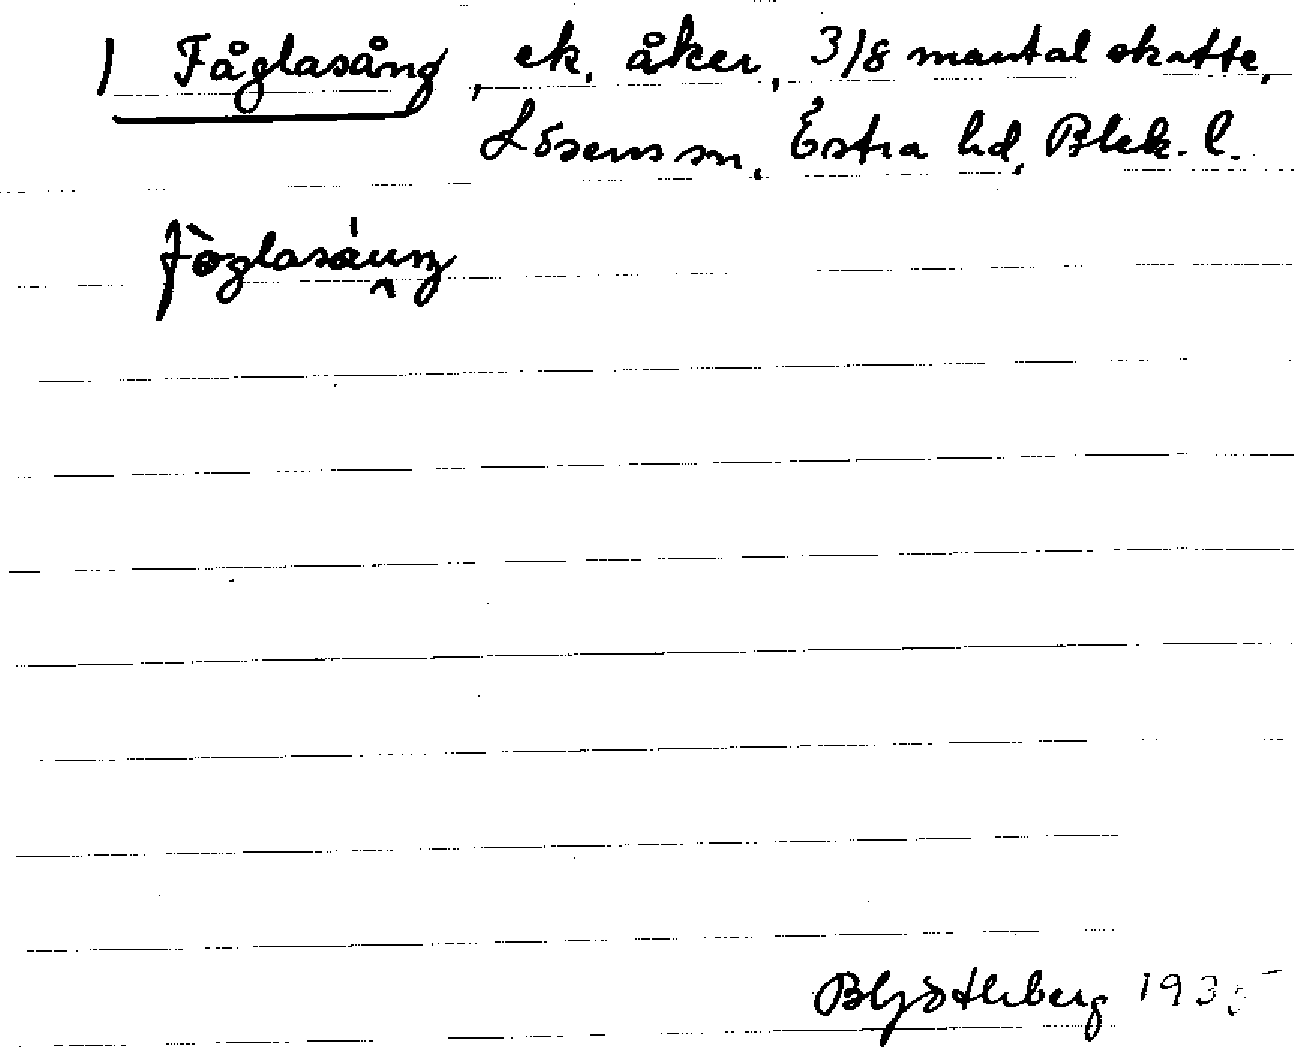 1) Fåglasång, ek. åker, 3/8 mantal skatte,
Lösens sn, Östra hd, Blek. l.
fòglasáu̯ng
1935